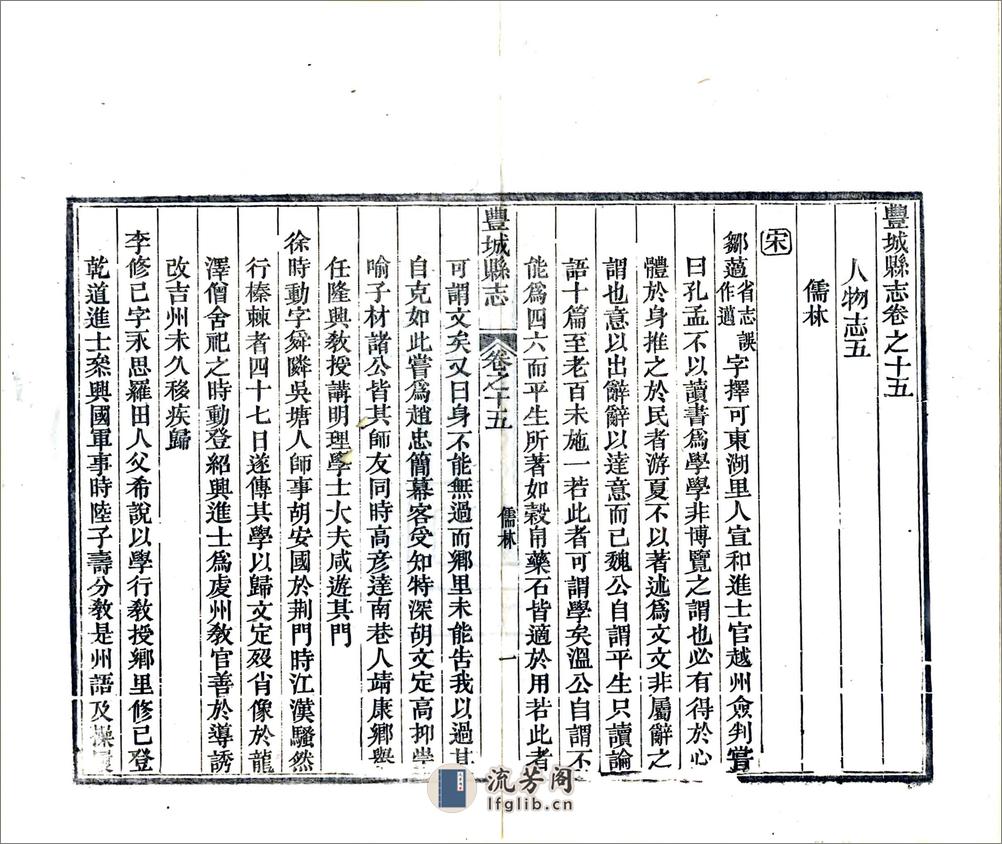 豐城縣志卷之十五
人物志五
儒林
宋
鄒薖省志誤作邁字擇可東湖里人宣和進士官越州僉判嘗
曰孔孟不以讀書爲學學非博覽之謂也必有得於心
體於身推之於民者游夏不以著述爲文文非屬辭之
謂也意以出辭辭以達意而已魏公自謂平生只讀論
語十篇至老百未施一若此者可謂學矣溫公自謂不
能爲四六而平生所著如穀帛藥石皆適於用若此者
豐城縣志 卷之十五 儒林 一
可謂文矣又曰身不能無過而鄉里未能告我以過其
自克如此嘗爲趙忠簡幕客受知特深胡文定高抑崇
喻子材諸公皆其師友同時高彥達南巷人靖康鄉舉
任隆興敎授講明理學士大夫咸遊其門
徐時動字舜隣吳塘人師事胡安國於荆門時江漢騷然
行榛棘者四十七日遂傳其學以歸文定歿肖像於龍
澤僧舍祀之時動登紹興進士爲虔州敎官善於導誘
改吉州未久移疾歸
李修已字永思羅田人父希說以學行敎授鄉里修已登
乾道進士叅興國軍事時陸子壽分敎是州語及操履
流芳阁
lfglib.cn